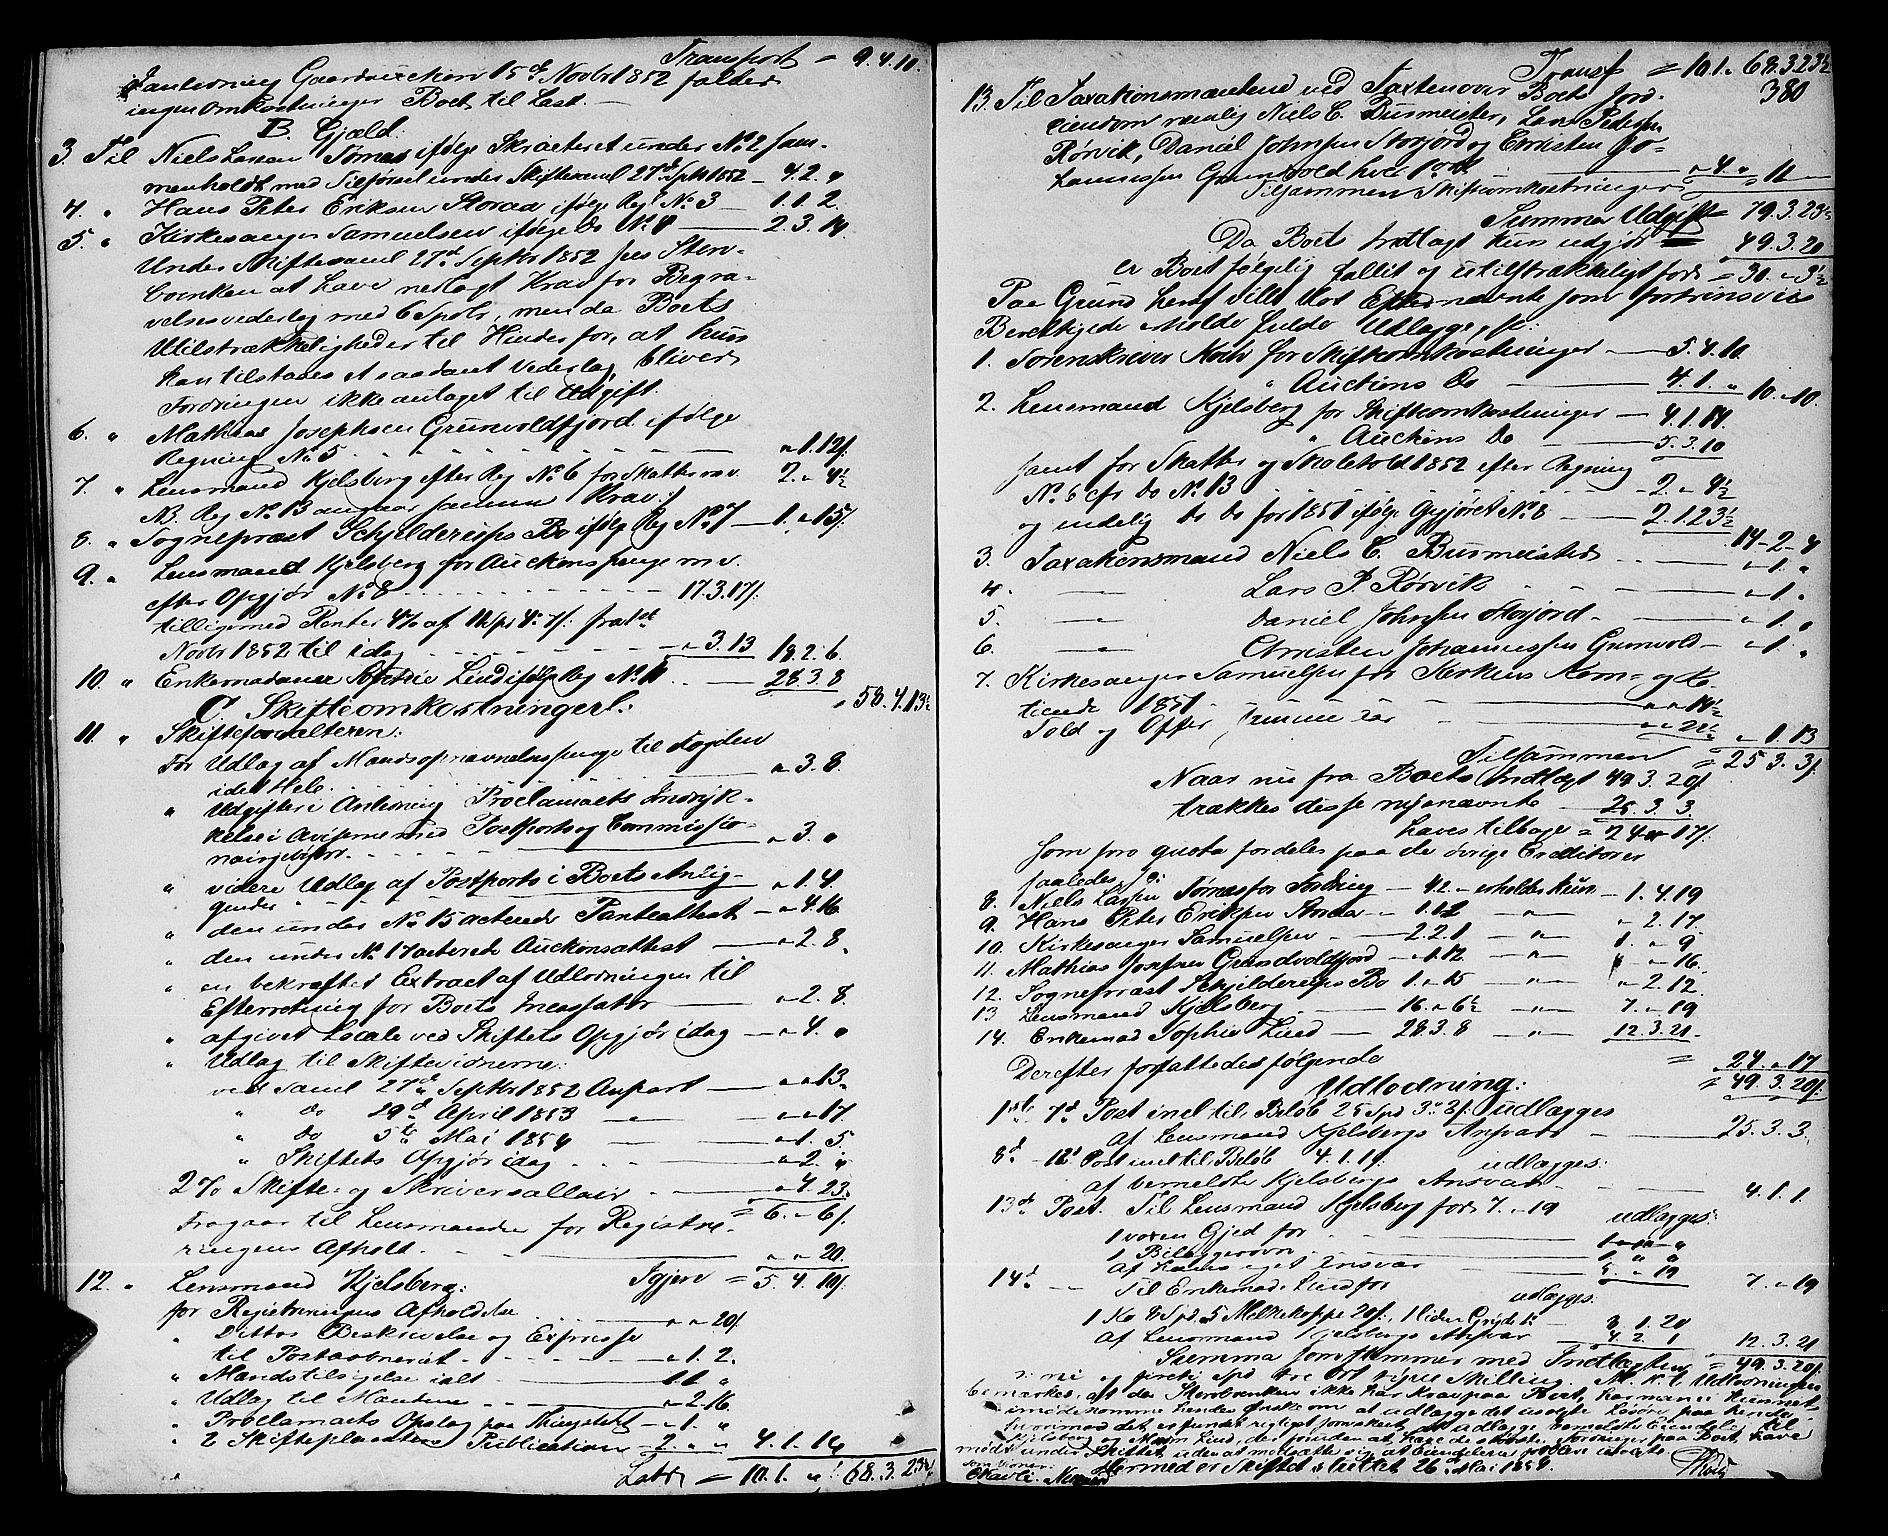 Transport = 9.4.11.
Gaardauction 15de Novbr 1852 falder
ingen Omkostninger Boet til Last. —
B. Gjæld:
3. Til Niels Larsen Tørnes ifølge Skrivteret under No 2 sam-
menholdt med Tilførsel under Skiftesaml 27de Septr 1852 — 4. 2. "
4. " Hans Peter Eriksen Storaa ifølge Reg No 3 — 1. 1. 2.
5. " Kirkesanger Samuelsen ifølge do No 4 — 2. 3. 14.
Under Skiftesaml 27de Septbr 1852 sees Sterv-
boenken at have nedlagt Krav for Begra-
velsesvederlag med 6 Spdlr, men da Boets
Utilstrækkeligheder til Hinder for, at hun
kan tilstaaes et saadant Vederlag, bliver
Fordringen ikke antaget til Udgift.
6. " Mathias Josephsen Grunvoldfjord ifølge
Regning No 5 " 1. 12/.
7. " Lensmand Kjelsberg efter Reg No 6 for Skatter m.v. 2. " 4½
NB. Reg No 13 angaar samme Krav./
8. " Sognepræst Schjelderups Bo ifølge Reg No 7 — 1. " 15/.
9. " Lensmand Kjelsberg for Auctionspenge m.v.
efter Opgjør No 8 17. 3. 17/.
tilligemed Renter 4% af fra 1st
Novbr 1852 til idag " 3. 13 18. 2. 6.
10. " Enkemadame Sophie Lund ifølge Reg No 11 — 28. 3. 8
C. Skifteomkostninger: " 58. 4. 13½
11. " Skifteforvalteren:
For Udlæg af Mandsopnævnelsespenge til Fogden
i det Hele " 3. 8.
" Udgifter i Anledning Proclamaets Indryk-
kelse i Aviserne med Postporto og Commissio-
nairgebyhr " 3. "
" videre Udlæg af Postporto i Boets Anlig-
gender " 1. 4.
" den under No 15 acterede Panteattest — " 4. 16
" den under No 17 acterede Auctionsattest — " 2. 8.
" en bekræftet Extract af Udlodningen til
Efterretning for Boets Incassator — " 2. 8.
" afgivet Locale ved Skiftets Opgjør idag — " 4. "
" Udlæg til Skiftevidnerne:
ved Saml 27de Septbr 1852 Anpart — " " 13.
" do 29d April 1853 — " " 17.
" do 5te Mai 1854 — " 1. 5.
" Skiftets Opgjør idag " 2. "
2% Skifte- og Skriversallair — " 4. 23.
= 6. " 6/.
Fragaar til Lensmanden for Registre-
ringens Afhold " " 20.
Igjen = 5. 4. 10/.
12. " Lensmand Kjelsberg:
for Registreringens Afholdelse " " 20/
" Dettos Beskrivelse og Expresse
til Postaabneriet " 1. 2.
" Mandstilsigelse ialt 1 1 "
" Udlæg til Mændene " 2. 16
" Proclamaets Opslag paa Thingstedet — " 1. "
" 2 Skifteplacaters Publication — 2. " " 4. 1. 14
Latus = 10. 1. " 68. 3. 23½
Transp = 10. 1. " 68. 3. 23½
13. Til Taxationsmændene ved Taxten over Boets Jord-
eiendom nemlig Niels C. Busmeister, Lars Pedersen
Rørvik, Daniel Johnsen Storjord og Christen Jo-
hannessen Grunvold hver 1 ort " 4. "
Tilsammen Skifteomkostninger = 11 —
Summa Udgift = 79. 3. 23½
Da Boets Indtægt kun udgjør = 49. 3. 20
er Boet følgelig fallit og utilstrækkeligt for = 30. " 3½
Paa Grund heraf vill blot Efternævnte som fortrinsviis
Berettigede erholde fulde Udlægge, s:
1. Sorenskriver Koch for Skifteomkostninger — 5. 4. 10
" Auctions do — 4. 1. " 10. " 10.
2. Lensmand Kjelsberg for Skifteomkostninger — 4. 1. 14.
" Auctions do 5. 3. 10
samt for Skatter og Skolehold 1852 efter Regning
No 6 cfr do No 13 2. " 4½
og endelig do do for 1851 ifølge Opgjøret No 8 — 2. 1. 23½
14 – 2 – 4
3. Taxationsmand Niels C. Busmeister " 1. "
4. — Lars P. Rørvik " 1. "
5. — Daniel Johnsen Storjord — " 1. "
6. — Christen Johannessen Grunvold — " 1. "
7. Kirkesanger Samuelsen for Kirkens Korn- og Ko-
tiende 1851
Told og Offer samme Aar " 1. 13
Tilsammen = 25. 3. 3/.
Naar nu fra Boets Indtægt 49. 3. 20/.
trækkes disse nysnævnte — 25. 3. 3.
haves tilbage = 24 " 17/.
som pro quota fordeles paa de øvrige Creditorer
saaledes, s:
8. Niels Larsen Tørnes for Fordring — 4. 2. – erholder kun — 1. 4. 19
9. Hans Peter Eriksen Storaa — 1. 1. 2 — " — " 2. 17.
10. Kirkesanger Samuelsen — 2. 2. 1 — " — 1. " 9
11. Mathias Josefsen Grundvoldfjord — " 1. 12 — " — " " 16.
12. Sognepræst Schjelderups Bo 1. " 15 — " — " 2. 12.
13 Lensmand Kjelsberg — 16. " 6½ — " — 7. " 19
14. Enkemad Sophie Lund — 28. 3. 8 — " — 12. 3. 21.
= 24. " 17
Derefter forfattedes følgende = 49. 3. 20/.
Udlodning:
1ste – 7d Post incl til Beløb 25 Spd 3 " 3/: udlægges
af Lensmand Kjelsbergs Ansvar — 25. 3. 3.
8d – 12d Post incl til Beløb 4. 1. 1/. udlægges:
af bemeldte Kjelsbergs Ansvar 4. 1. 1
13de Post. Til Lensmand Kjelsberg for 7. " 19 udlægges:
1 voxen Gjed for 1 " "
1 Bilæggerovn 1. " "
af Hans eget Ansvar 5. " 19 7. " 19
14d — Til Enkemad Lund for udlægges:
1 Ko 8 Spd, 5 Melkekopper 20/., 1 liden Gryde 1 " 8. 1. 20
af Lensmand Kjelsbergs Ansvar 4. 2. 1 12. 3. 21
Summa som stemmer med Indtægten = 49. 3. 20/.
ni og fireti Spd tre Ort tyve Skilling. M. H. t. Udlodningen
bemærkes, at da Stervboenken ikke har Krav paa Boet,
Hermed er Skiftet sluttet 26de Mai 1854.